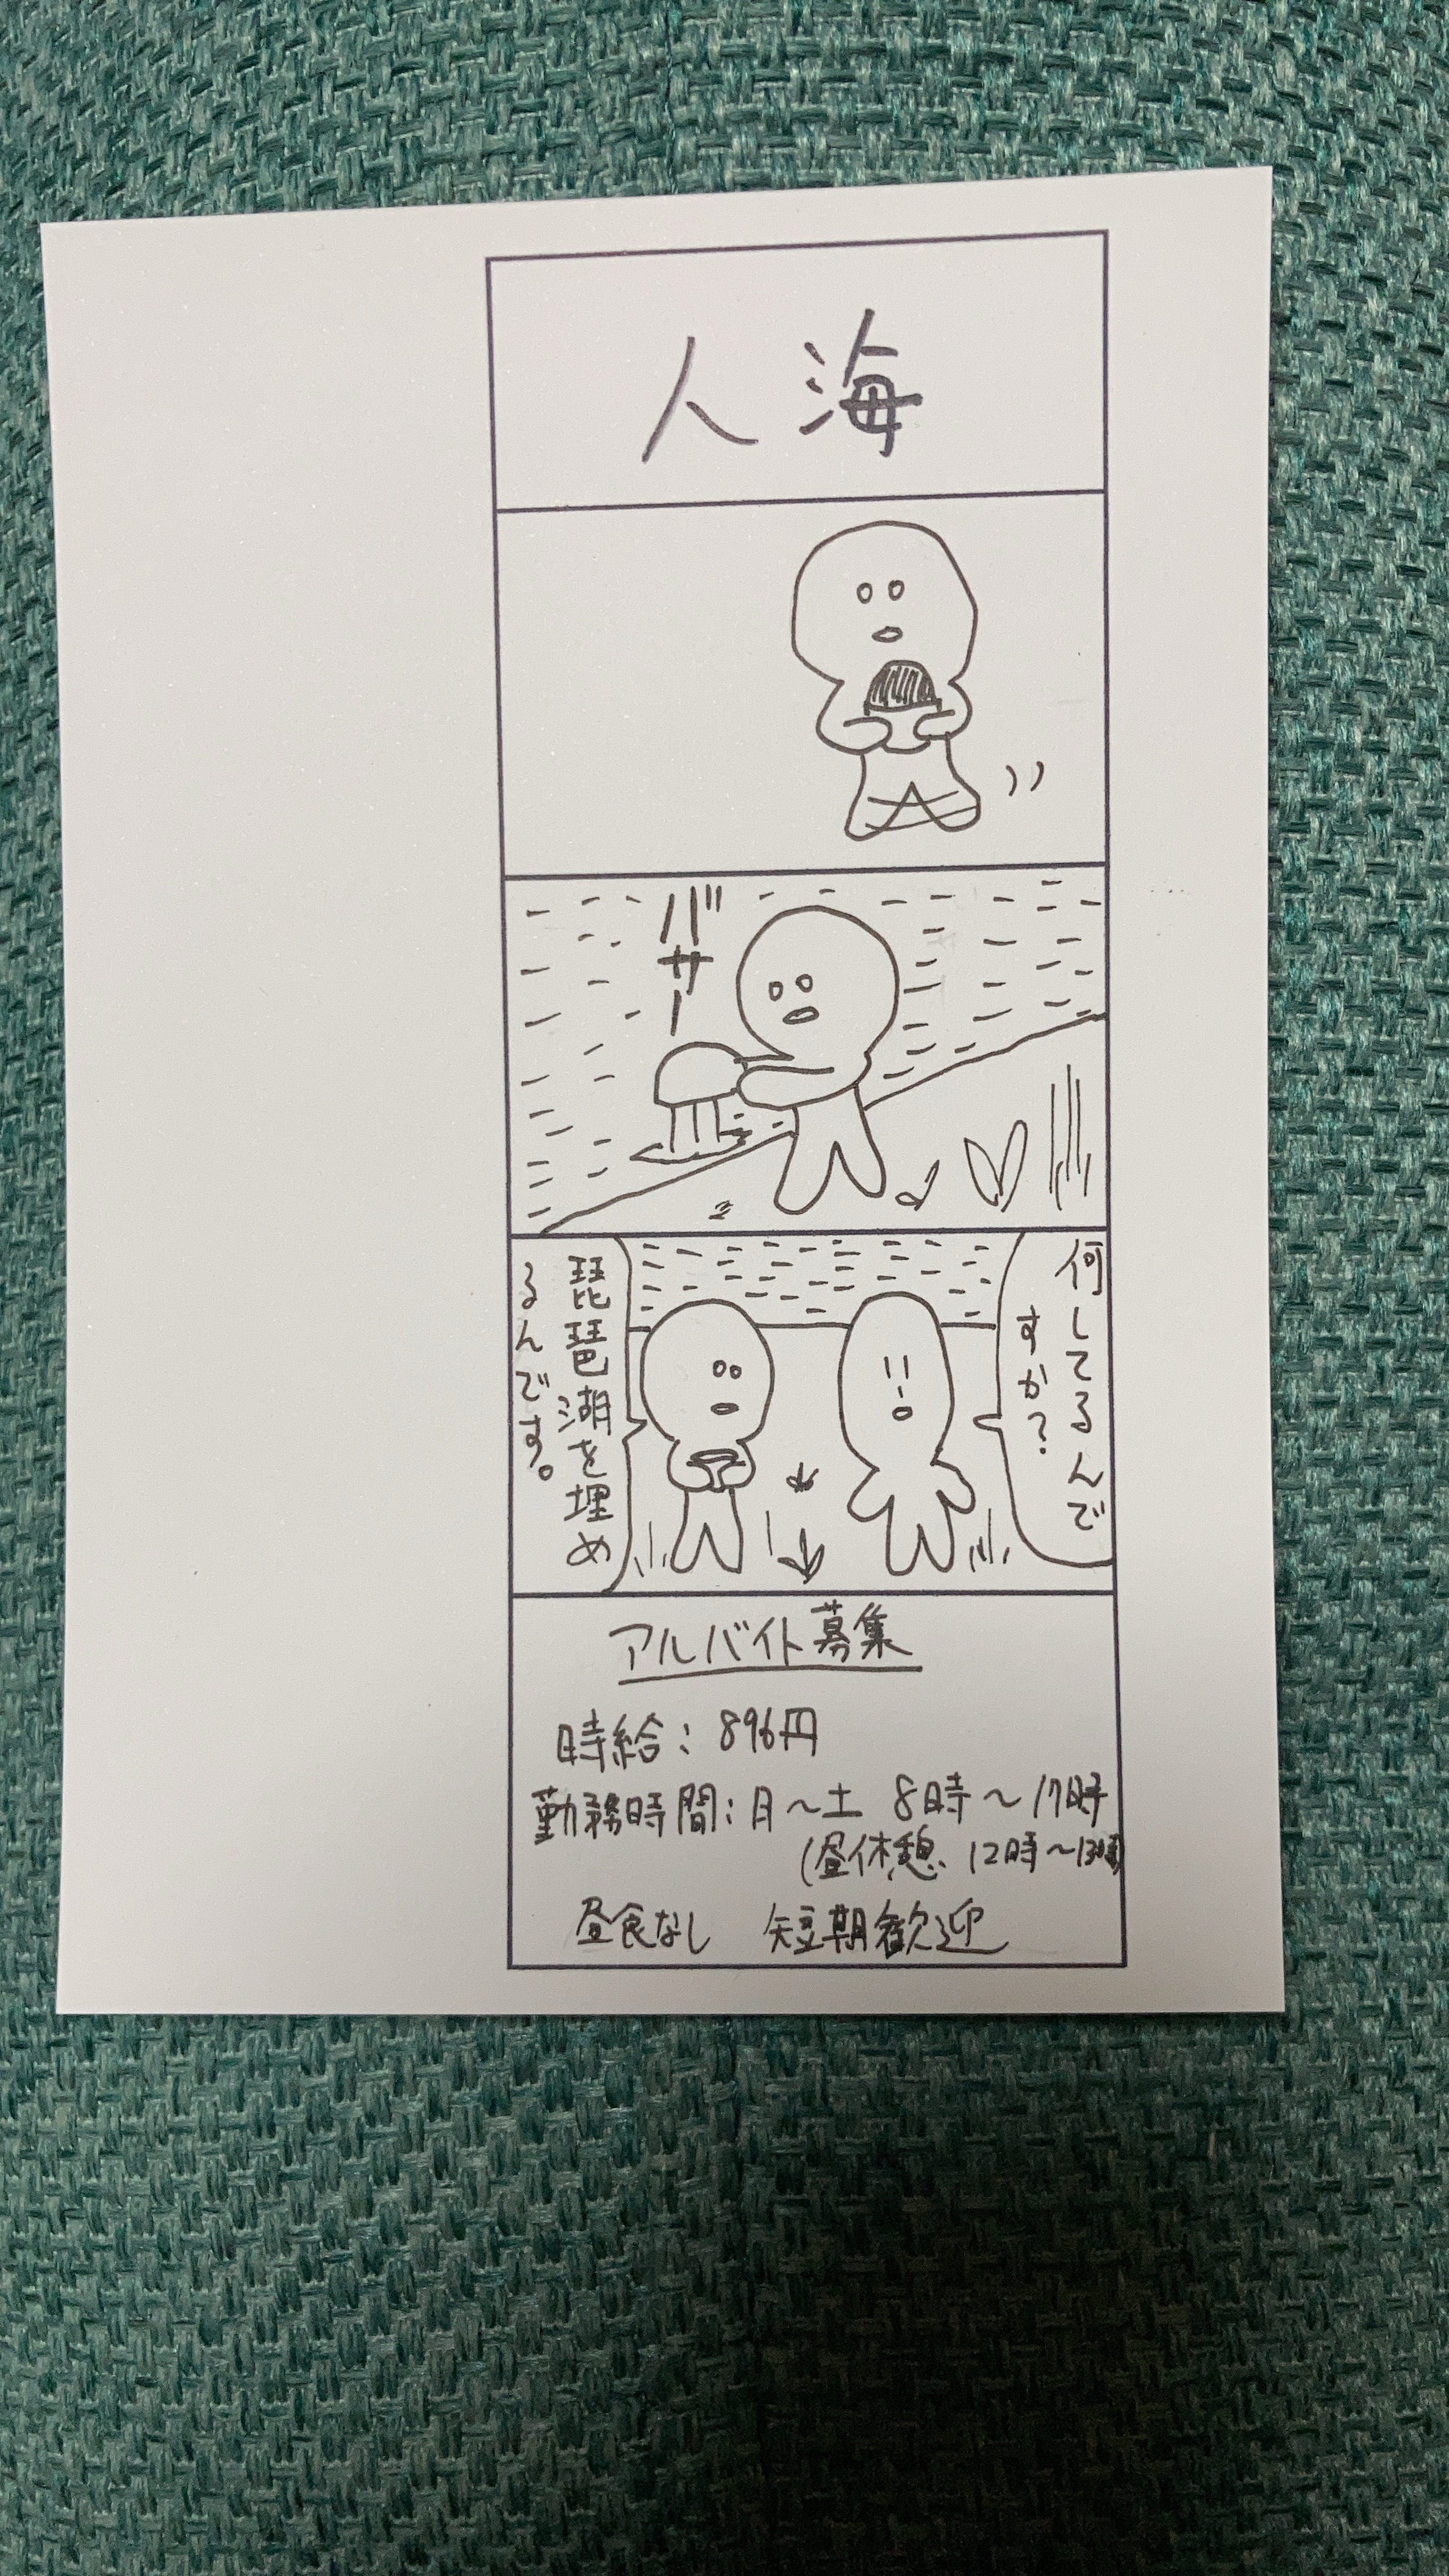 人海
バサー
何してるんで
すか?
琵琶湖を埋め
るんです。
アルバイト募集
時給：896円
勤務時間：月～土 8時～17時
(昼休憩 12時～13時)
昼食なし 短期歓迎